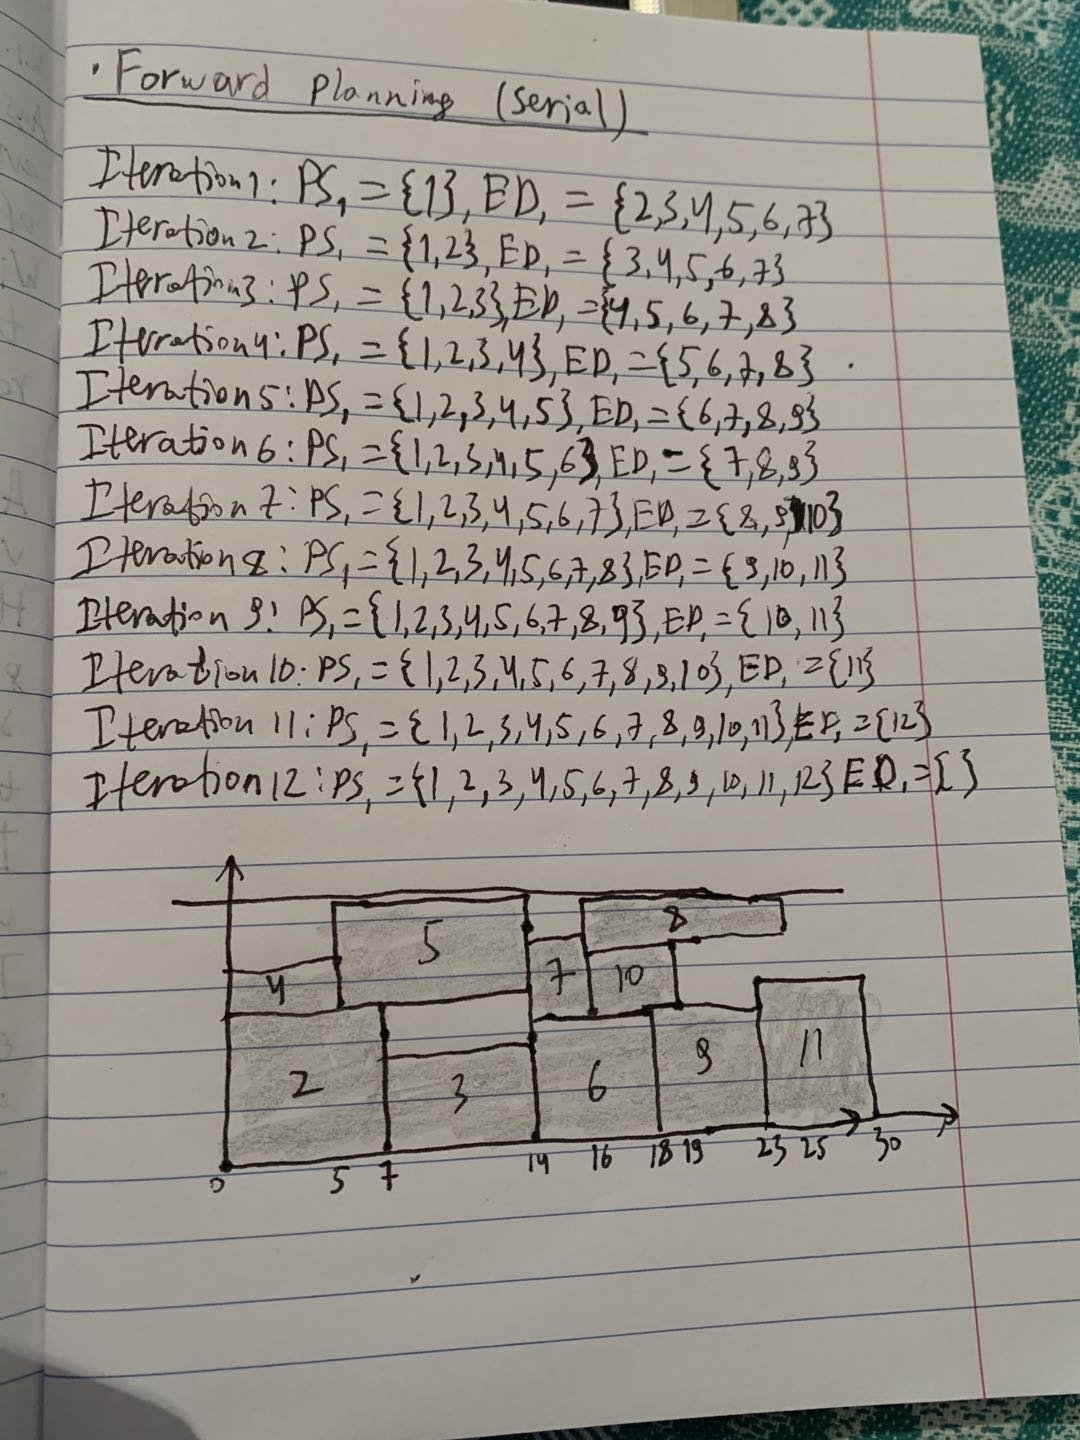 · Forward Planning (serial)
Iteration 1: PS₁ = {1}, ED₁ = {2,3,4,5,6,7}
Iteration 2: PS₁ = {1,2}, ED₁ = {3,4,5,6,7}
Iteration 3: PS₁ = {1,2,3}, ED₁ = {4,5,6,7,8}
Iteration 4: PS₁ = {1,2,3,4}, ED₁ = {5,6,7,8}
Iteration 5: PS₁ = {1,2,3,4,5}, ED₁ = {6,7,8,9}
Iteration 6: PS₁ = {1,2,3,4,5,6}, ED₁ = {7,8,9}
Iteration 7: PS₁ = {1,2,3,4,5,6,7}, ED₁ = {8,9,10}
Iteration 8: PS₁ = {1,2,3,4,5,6,7,8}, ED₁ = {9,10,11}
Iteration 9: PS₁ = {1,2,3,4,5,6,7,8,9}, ED₁ = {10,11}
Iteration 10: PS₁ = {1,2,3,4,5,6,7,8,9,10}, ED₁ = {11}
Iteration 11: PS₁ = {1,2,3,4,5,6,7,8,9,10,11}, ED₁ = {12}
Iteration 12: PS₁ = {1,2,3,4,5,6,7,8,9,10,11,12} ED₁ = { }
5 8
4 7 10
2 3 6 9 11
0 5 7 14 16 18 19 23 25 30